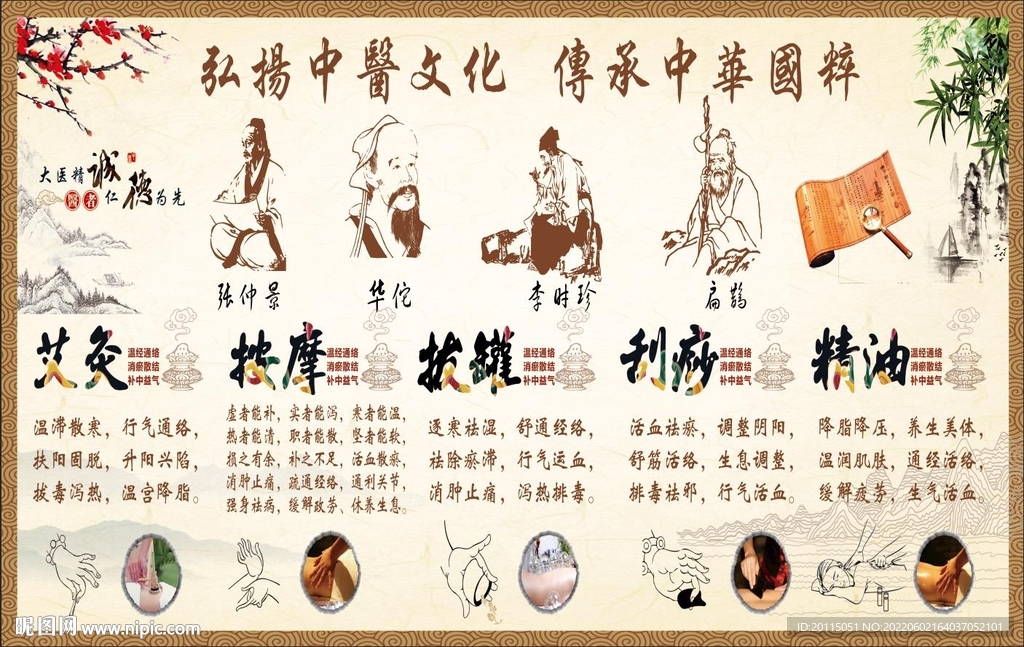 弘揚中醫文化 傳承中華國粹
大医精诚
醫者仁德为先
张仲景
华佗
李时珍
扁鹊
艾灸
温经通络
消瘀散结
补中益气
温滞散寒，行气通络，
扶阳固脱，升阳兴陷，
拔毒泻热，温宫降脂。
按摩
温经通络
消瘀散结
补中益气
虚者能补，实者能泻，寒者能温，
热者能清，职者能散，坚者能软，
损之有余，补之不足，活血散瘀，
消肿止痛，疏通经络，通利关节，
强身祛病，缓解政劳、休养生息。
拔罐
温经通络
消瘀散结
补中益气
逐寒祛湿，舒通经络，
祛除瘀滞，行气运血，
消肿止痛，泻热排毒。
刮痧
温经通络
消瘀散结
补中益气
活血祛瘀，调整阴阳，
舒筋活络，生息调整，
排毒祛邪，行气活血。
精油
温经通络
消瘀散结
补中益气
降脂降压，养生美体，
温润肌肤，通经活络，
缓解疲劳，生气活血。
昵图网 www.nipic.com
ID:20115051 NO:20220602164037052101